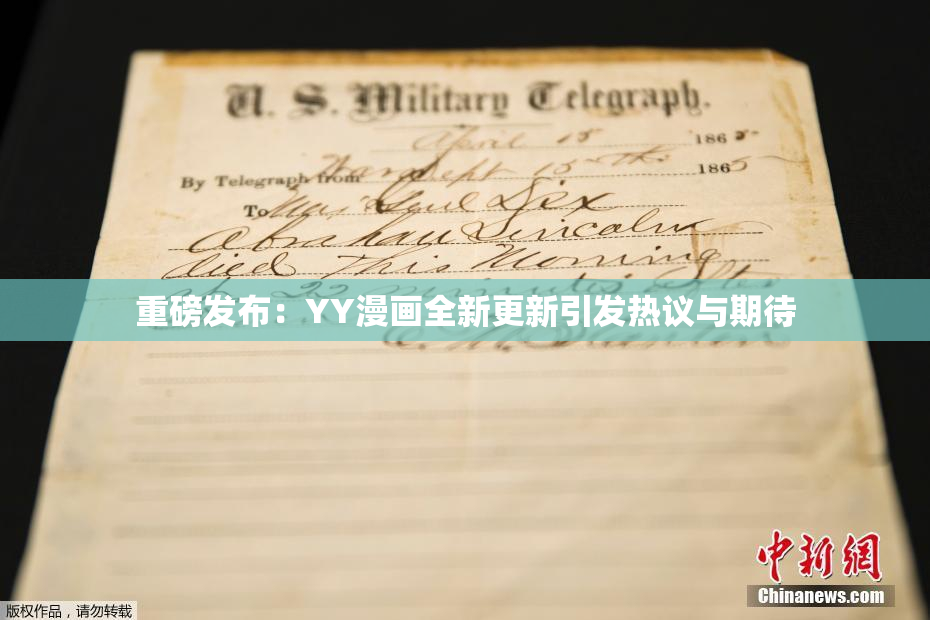 U. S. Military Telegraph.
April 15 1865
By Telegraph from War Dept 15th 1865
To Maj Genl Dix
Abraham Lincoln
died This Morning
at 22 minutes after
重磅发布：YY漫画全新更新引发热议与期待
E. M. Stanton
中新网
Chinanews.com
版权作品，请勿转载